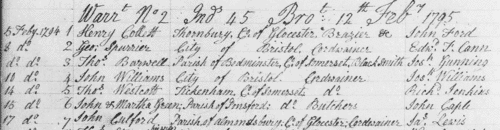 Warrt. No 2 Ind 45 Brot. 12th Feby 1795
5 Feby. 1794 1 Henry Collett Thornbury, C. of Glocester Brazier &c John Ford
8 do. 2 Geo. Spurrier City of Bristol Cordwainer Edwd. T. Cann
do do. 3 Thos. Barwell Parish of Bedminster, C. of Somerset, Black Smith Jos. Gunning
10 do. 4 John Williams City of Bristol Cordwainer Jos. Williams
14 do 5 Thos. Westcott Tickenham, C. of Somerset do. Richd. Jenkins
15 do 6 John & Martha Green; Parish of do. Butchers John Cable
17 do. 7 John Parish of Almondsbury C. of Glocester; Cordwainer Jas. Lewis